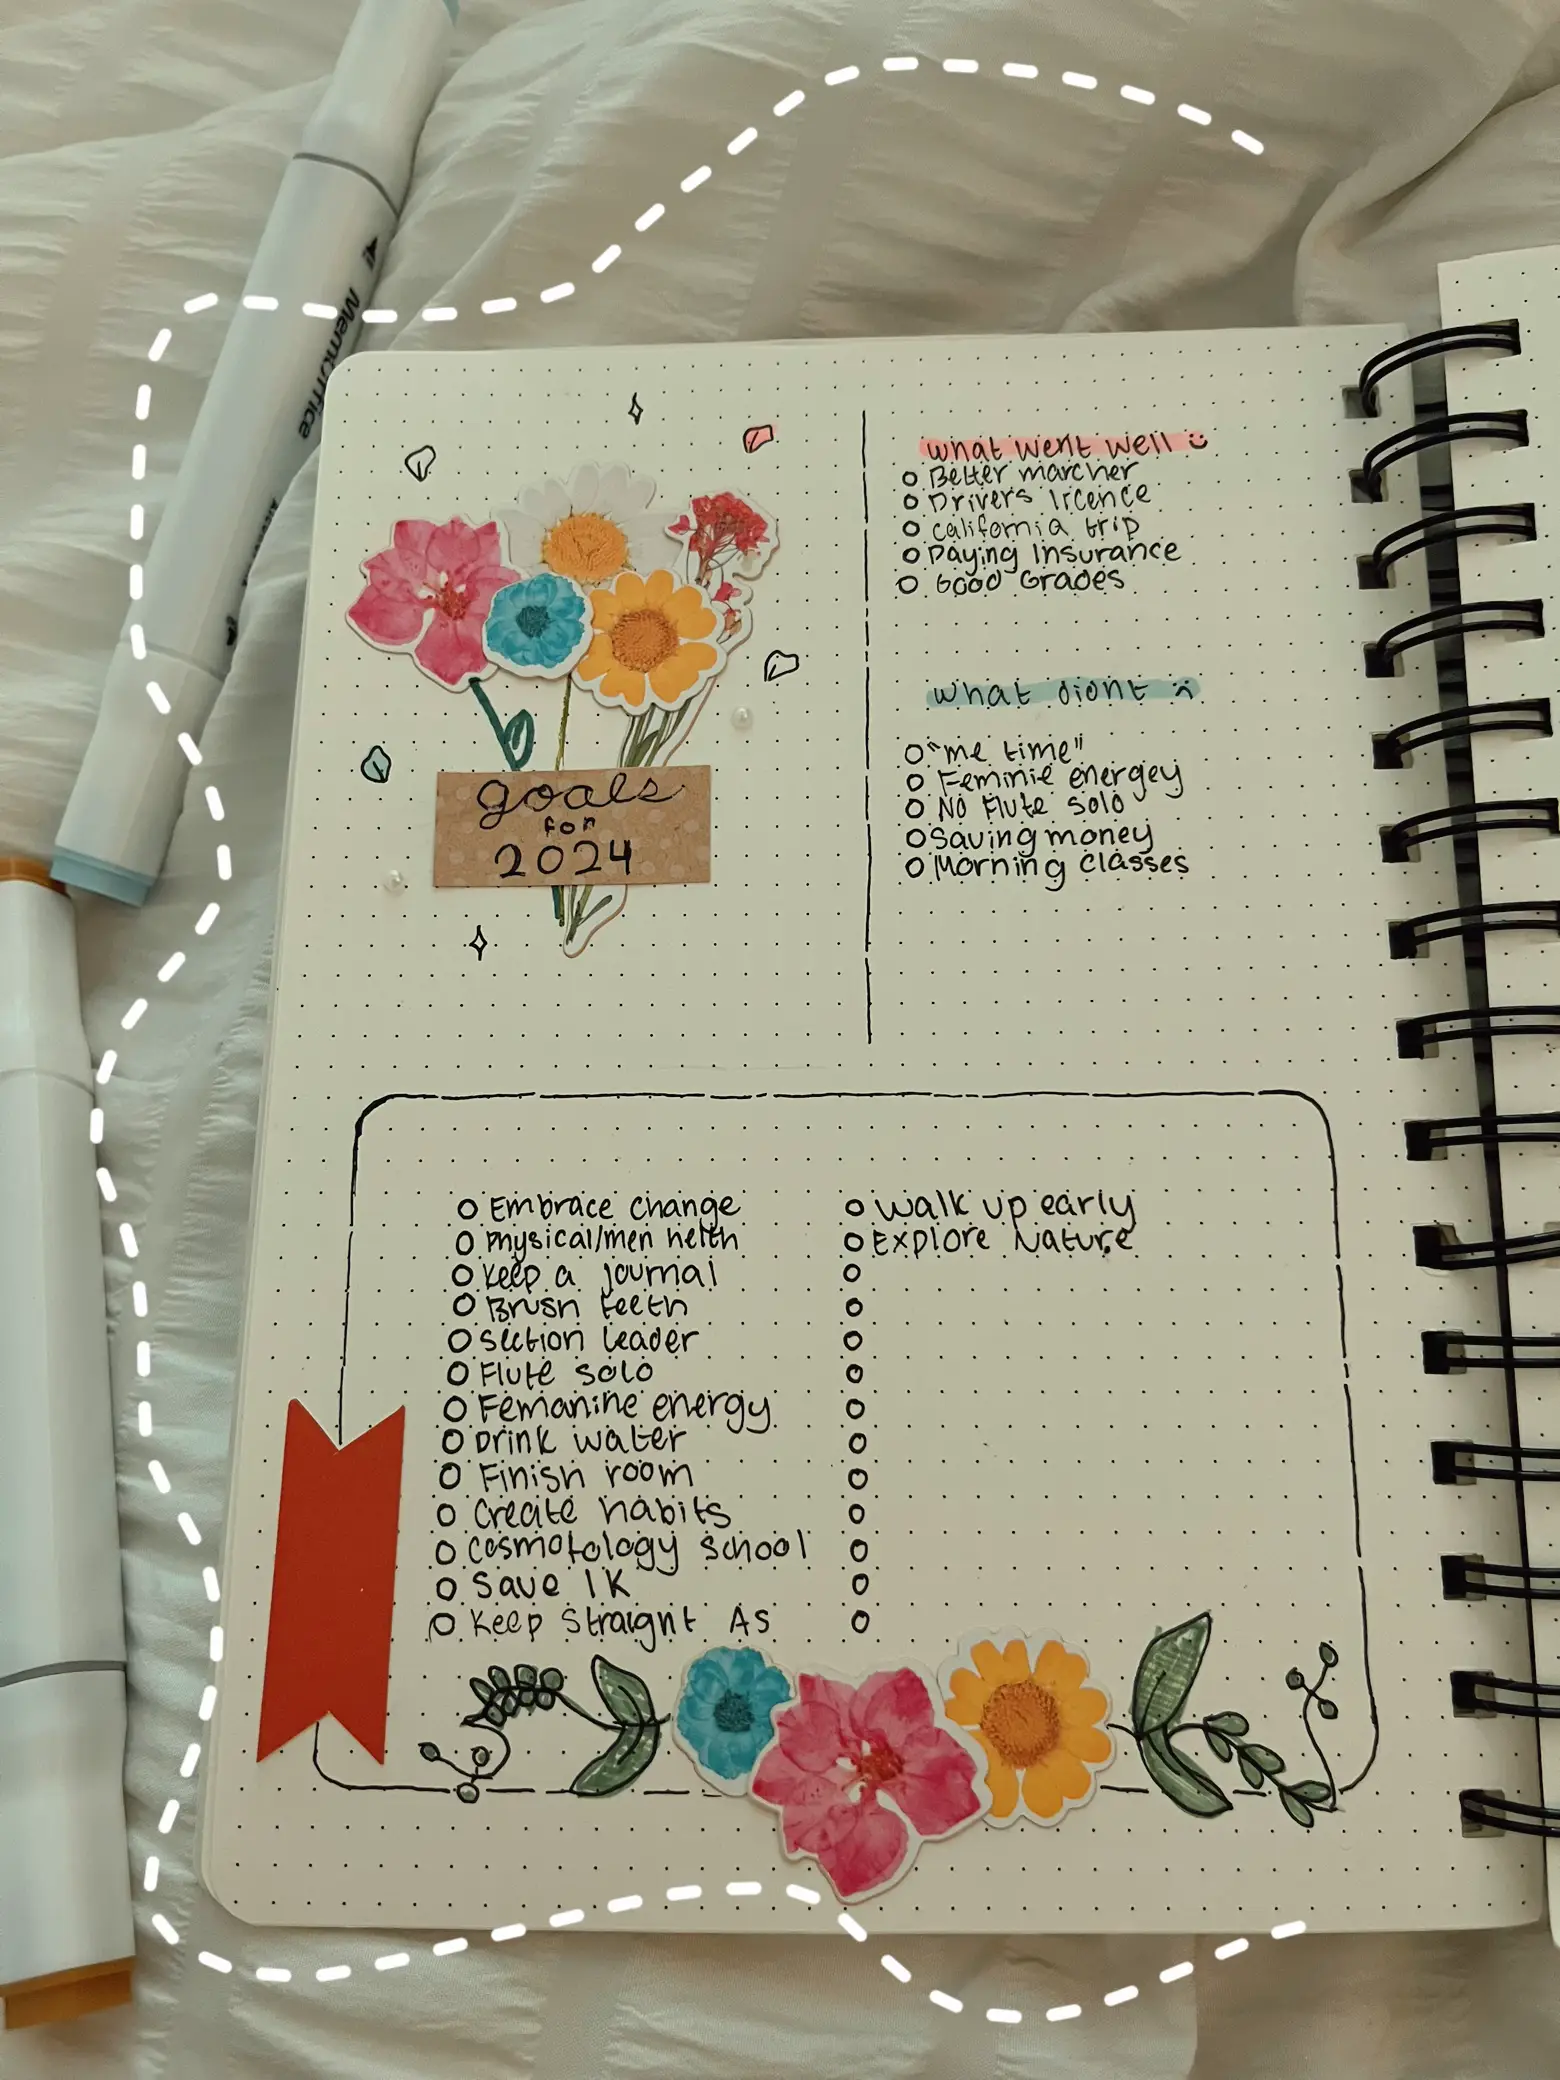 MemOffice
goals
for
2024
What went well
Better marcher
Drivers licence
California trip
Paying Insurance
Good Grades
What didnt
"me time"
Feminie energey
No Flute solo
Saving money
Morning classes
Embrace change
Physical/men helth
Keep a journal
Brush teeth
Section leader
Flute solo
Femanine energy
Drink water
Finish room
Create habits
Cosmotology school
Save 1K
Keep Straight As
Walk up early
Explore Nature